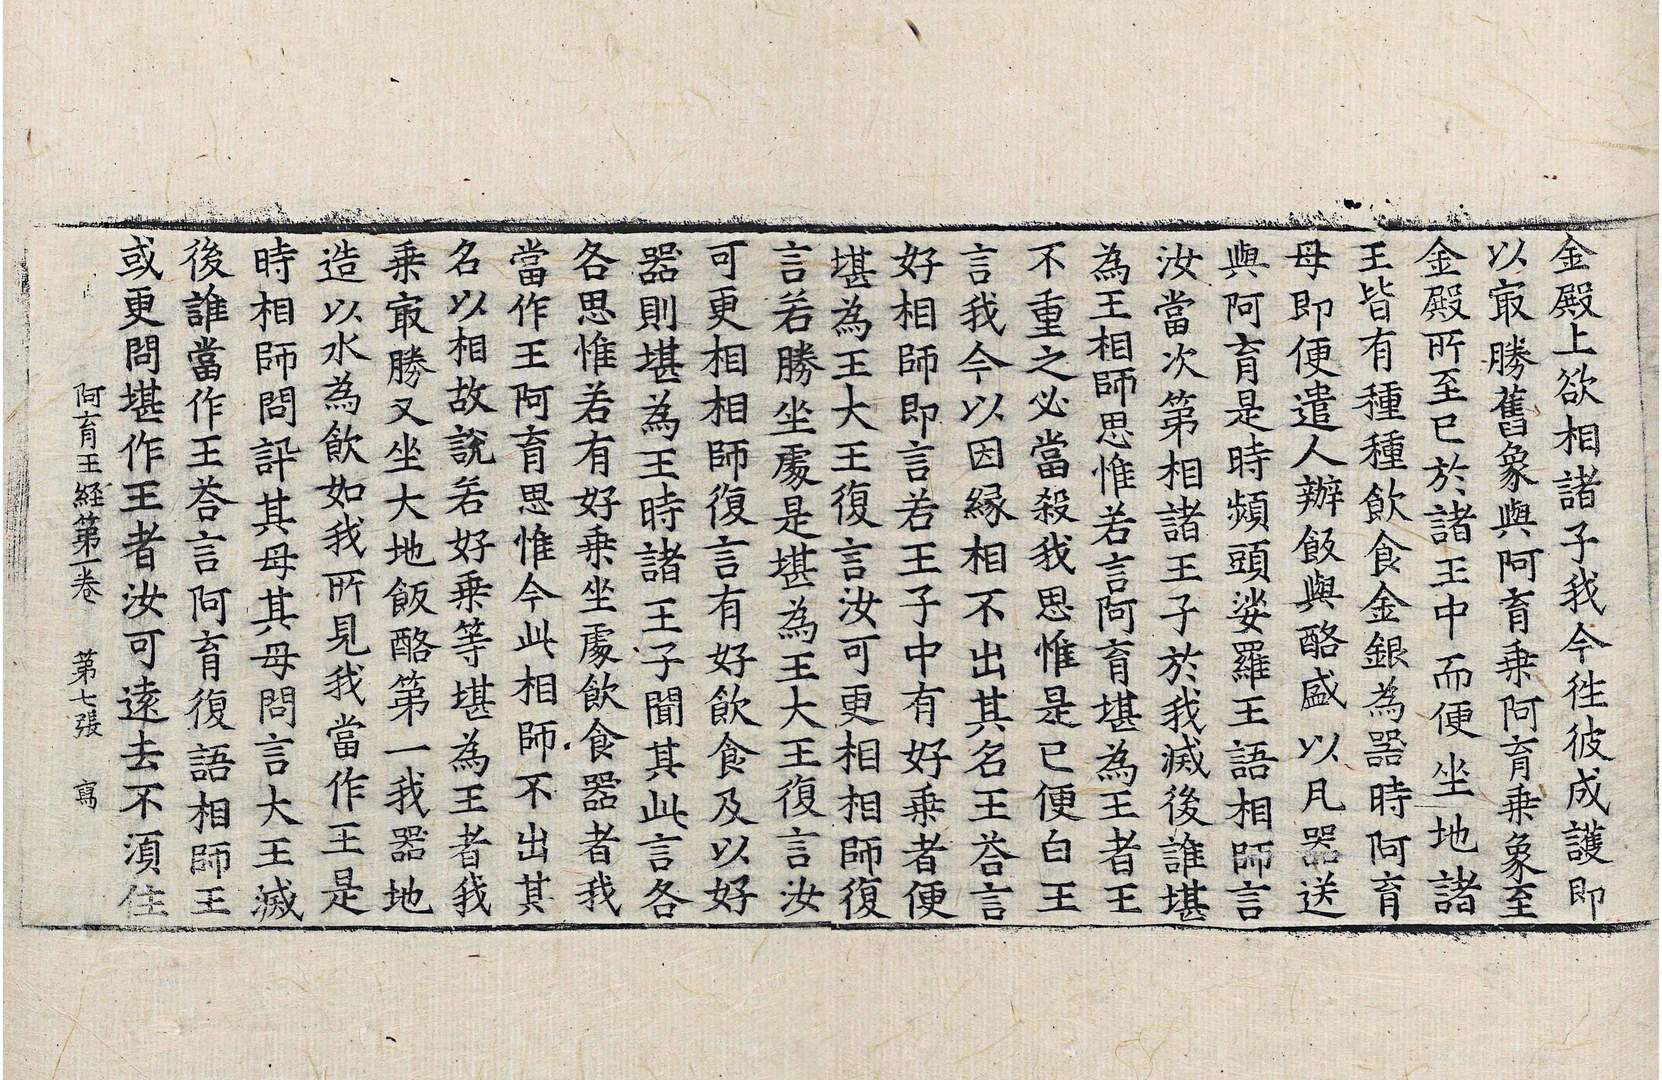 金殿上欲相諸子我今徃彼成護即
以㝡勝舊象與阿育乗阿育乗象至
金殿所至已於諸王中而便坐地諸
王皆有種種飲食金銀為器時阿育
母即便遣人辦飯與酪盛以凡器送
與阿育是時頻頭娑羅王語相師言
汝當次第相諸王子於我滅後誰堪
為王相師思惟若言阿育堪為王者王
不重之必當殺我思惟是已便白王
言我今以因縁相不出其名王荅言
好相師即言若王子中有好乗者便
堪為王大王復言汝可更相相師復
言若勝坐處是堪為王大王復言汝
可更相相師復言有好飲食及以好
器則堪為王時諸王子聞其此言各
各思惟若有好乗坐處飲食器者我
當作王阿育思惟今此相師不出其
名以相故說若好乗等堪為王者我
乗㝡勝又坐大地飯酪第一我器地
造以水為飲如我所見我當作王是
時相師問訊其母其母問言大王滅
後誰當作王荅言阿育復語相師王
或更問堪作王者汝可遠去不湏住
阿育王経第一卷 第七張 寫